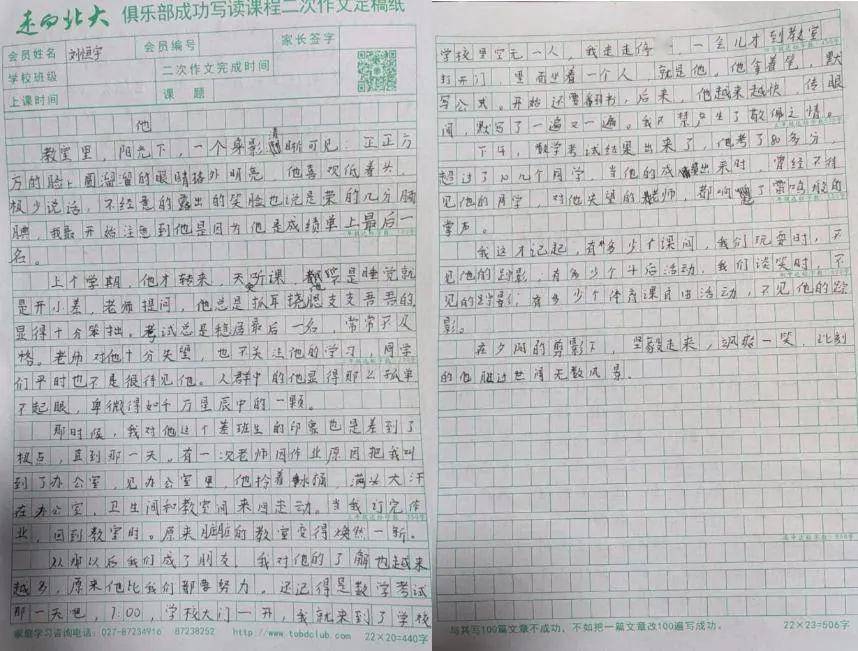 走向北大 俱乐部成功写读课程二次作文定稿纸
会员姓名 刘恒宇 会员编号 家长签字
学校班级 二次作文完成时间
上课时间 课题
他
教室里,阳光下,一个身影清晰可见:正正方
方的脸上圆溜溜的眼睛格外明亮,他喜欢低着头,
极少说话,不经意的露出的笑脸也说是荣的几分腼
腆,我最开始注意到他是因为他是成绩单上最后一
名。
上个学期,他才转来,天听课,都是睡觉就
是开小差,老师提问,他总是抓耳挠腮支支吾吾的
显得十分笨拙。考试总是稳居最后一名,常常不及
格。老师对他十分失望,也不关注他的学习,同学
们平时也不是很待见他。人群中的他显得那么孤单
不起眼,卑微得如千万星辰中的一颗。
那时候,我对他这个差班生的印象也是差到了
极点,直到那一天。有一次老师因作业原因把我叫
到了办公室,见办公室里,他拎着水桶,满头大汗
在办公室,卫生间和教室间来回走动。当我订完作
业,回到教室时。原来脏脏的教室变得焕然一新。
从那以后我们成了朋友,我对他的了解也越来
越多,原来他比我们都要努力。还记得是数学考试
那一天吧,7:00,学校大门一开,我就来到了学校
家庭学习咨询电话:027-87234916 87238252 http://www.tobdclub.com 22×20=440字
学校里空无一人,我走走停,一会儿才到教室
打开门,里面坐着一个人,就是他。他拿着笔,默
写公式。开始还要翻书,后来,他越来越快,传眼
间,默写了一遍又一遍。我不禁产生了敬佩之情。
下午,数学考试结果出来了,他考了80多分,
超过了几个同学,当他的成绩出来时,曾经不待
见他的同学,对他失望的老师,都响起了雷鸣般的
掌声。
我这才记起,有多少个课间,我们玩耍时,不
见他的踪影,有多少个午后活动,我们谈笑时,不
见的踪影,有多少个体育课自由活动,不见他的踪
影。
在夕阳的剪影下,坚毅走来,飒然一笑,此刻
的他胜过世间无数风景。
与其写100篇文章不成功,不如把一篇文章改100遍写成功。 22×23=506字